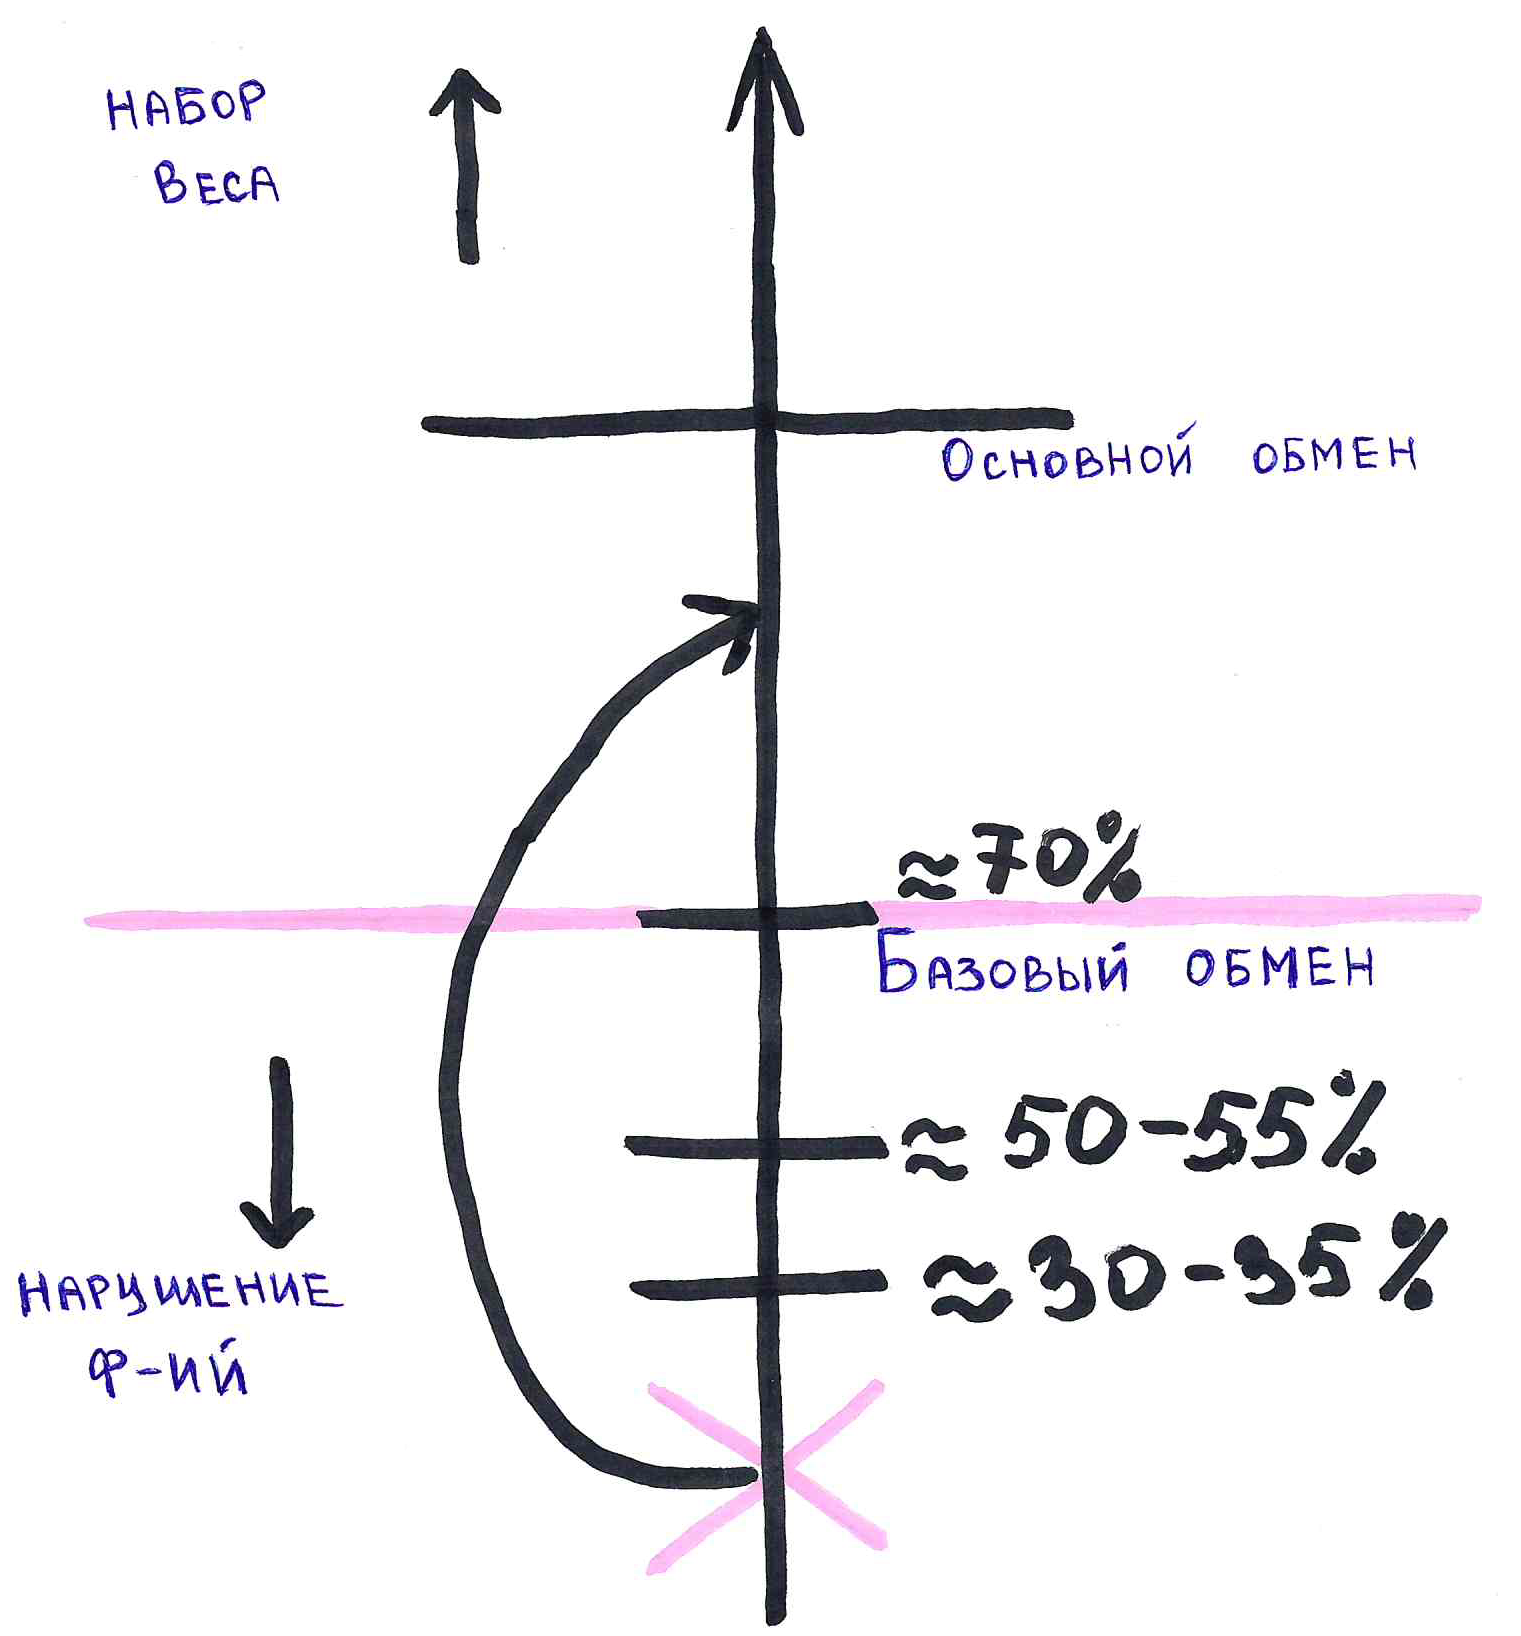 НАБОР
ВЕСА
ОСНОВНОЙ ОБМЕН
≈70%
БАЗОВЫЙ ОБМЕН
≈ 50-55%
≈ 30-35%
НАРУШЕНИЕ
Ф-ИЙ